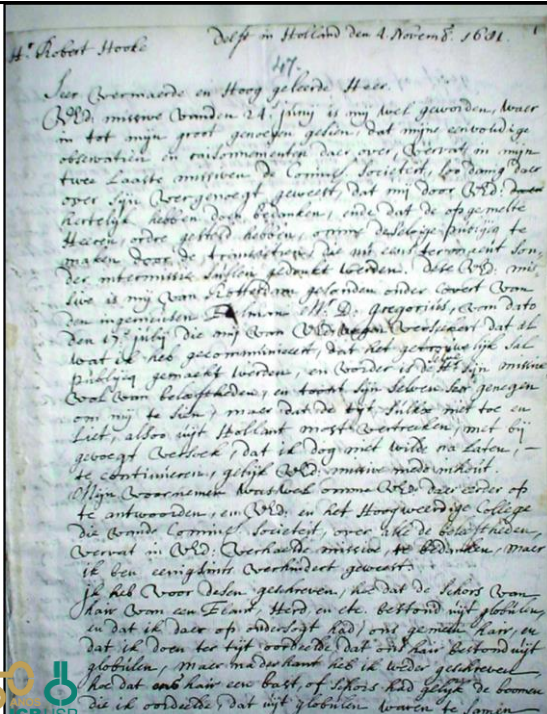 Delft in Holland den 4 Novemb. 1681.
Hr Robert Hooke
47.
Seer Vermaerde en Hoog geleerde Heer.
VEd: missive vanden 24 Junij is mij wel geworden, waer
in tot mijn groot genoegen gesien, dat mijne eenvoudige
observatiën en raisonnementen daer over, vervat in mijn
twee Laaste missiven de Coninkl. Societeit, soo danig daer
over sijn vergenoegt geweest, dat mij door VEd:
hertelijk hebben doen bedanken, ende dat de opgemelte
Heeren, ordre gestelt hebben, omme deselvige publijcq te
maken door de
der intermissie sullen gedrukt werden. Dese VEd: mis-
sive is mij van Rotterdam gesonden onder Covert van
den ingenieusen Mr. D: Gregorius, van dato
den 17e julij die mij van versekert dat al
wat ik heb gecommuniceert, dat het getrouwelijk sal
publijcq gemaekt werden, en vorder is de Hr. sijn missive
vol van beleeftheden, en toont sijn selven seer genegen
om mij te sien, maer dat de tijt sulks niet toe en
Liet, alsoo uijt Hollant most vertrecken, met bij
gevoegt versoek, dat ik dog niet wilde na laten,
te continueren, gelijk VEd: missive mede inhout.
Mijn voornemen was wel omme VEd: daer eerder op
te antwoorden, en VEd: en het Hoog weerdige College
die vande Coninkl. Societeit, over alle de beleeftheden,
vervat in VEd: verhaelde missive, te bedanken, maer
ik ben eenigsints verhindert geweest.
Ik heb voor desen geschreven, hoe dat de schors van
hair van een Elant, Herd en etc. bestond uijt globulen,
en dat ik daer op ondersogt had, ons gemeen hair, en
dat ik doen ter tijt oordeelde dat ons hair bestond uijt
globulen, maer naderhant heb ik weder geschreven
hoe dat ons hair een bast, of schors had gelijk de boomen
die ik oordeelde, dat uijt globulen waren te samen